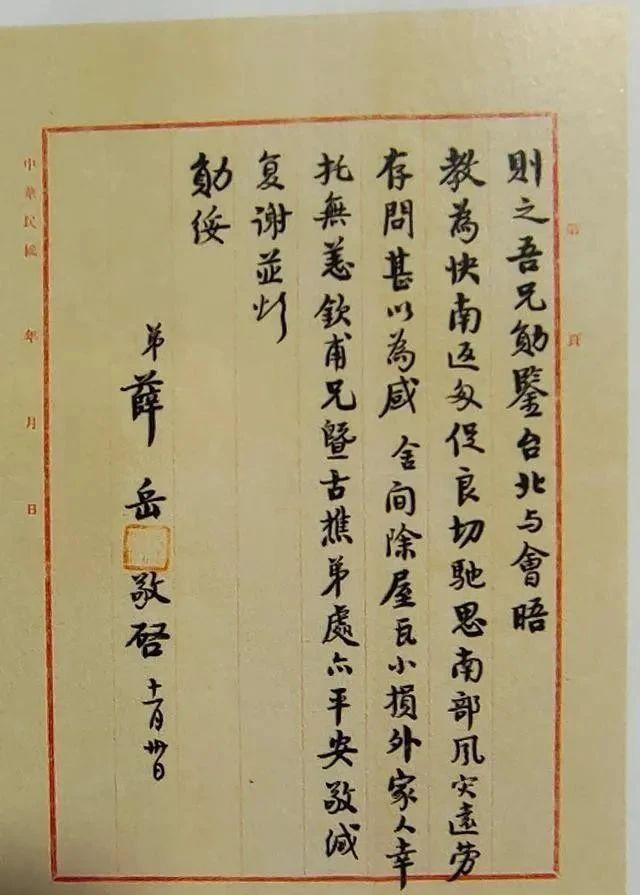 第 頁
則之吾兄勛鑒台北与會晤
教為快南返匆促良切馳思南部風灾遠劳
存問甚以為感 舍間除屋瓦小損外家人幸
托無恙欽甫兄暨古樵弟處亦平安敬
复谢並頌
勛綏
弟薛岳敬啓 十一月卅日
中華民國 年 月 日